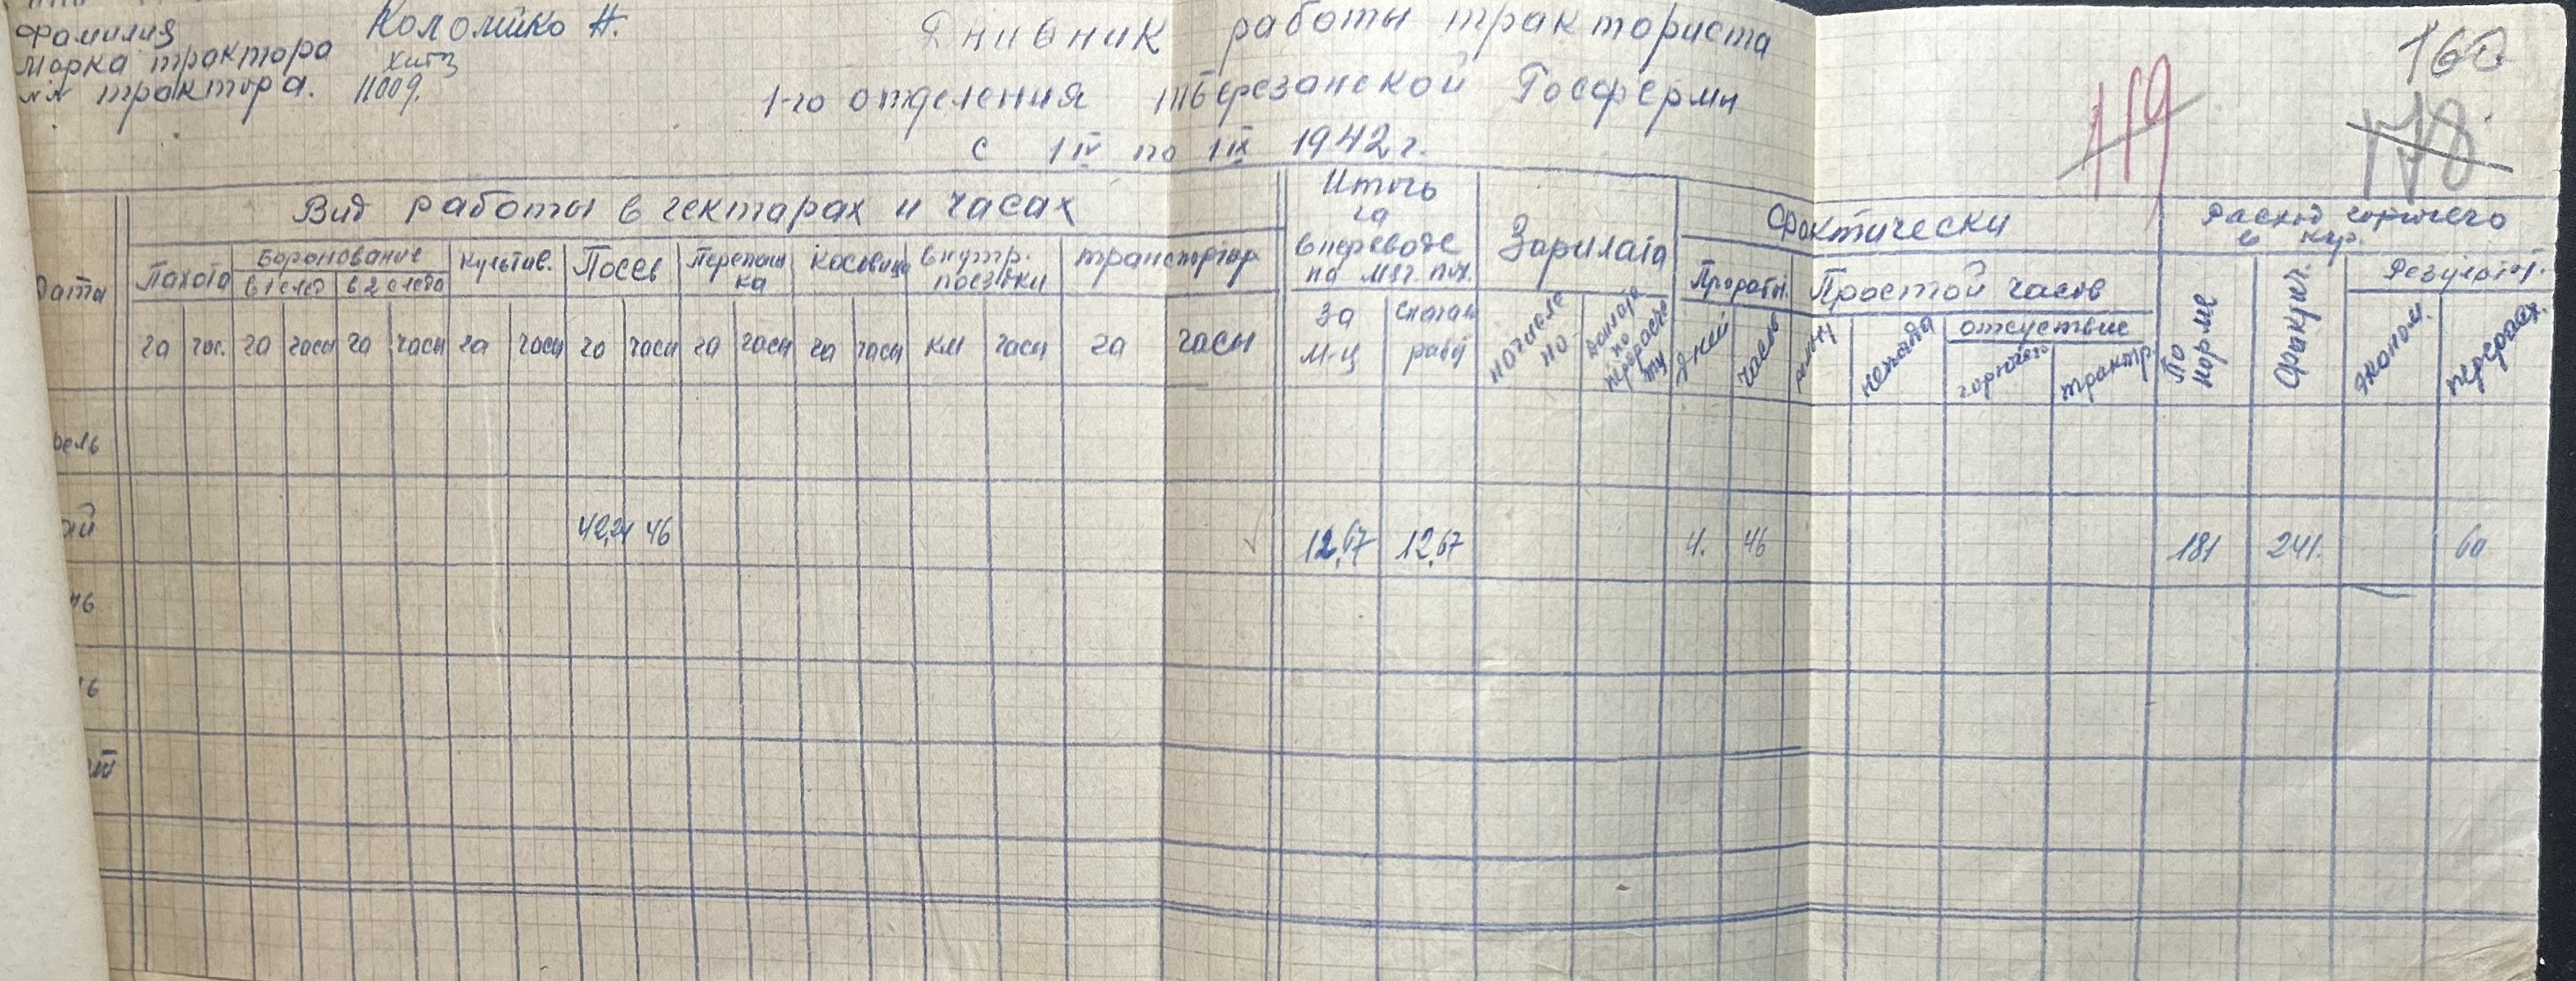 Фамилия Коломийко Н.
Марка трактора ХИТЗ
№№ трактора. 11009.
Днивник работы тракториста
1-го отделения Березанской Госфермы
с 1 IV по 1 IX 1942 г.
160
119
178
Дата
Вид работы в гектарах и часах
Итого га в переводе на мяг. пах.
Зарплата
Фактически
Расход горючего в кгр.
Пахота
Боронование
в 1 след
в 2 следа
культив.
Посев
Перепашка
косовица
внутр. поездки
транспортир
Прораб.
Простой часов
Результат.
га час. га часы га часы га часы га часы га часы га часы км часы га часы
За м-ц
начисле но
дней
часов
ремонт
непогода
отсуствие
горючего
трактор.
По норме
Факуич.
эконом.
перерасх.
рель
ай 42,24 46 12,67 12,67 4. 46 181 241. 60
нь
ль
ст